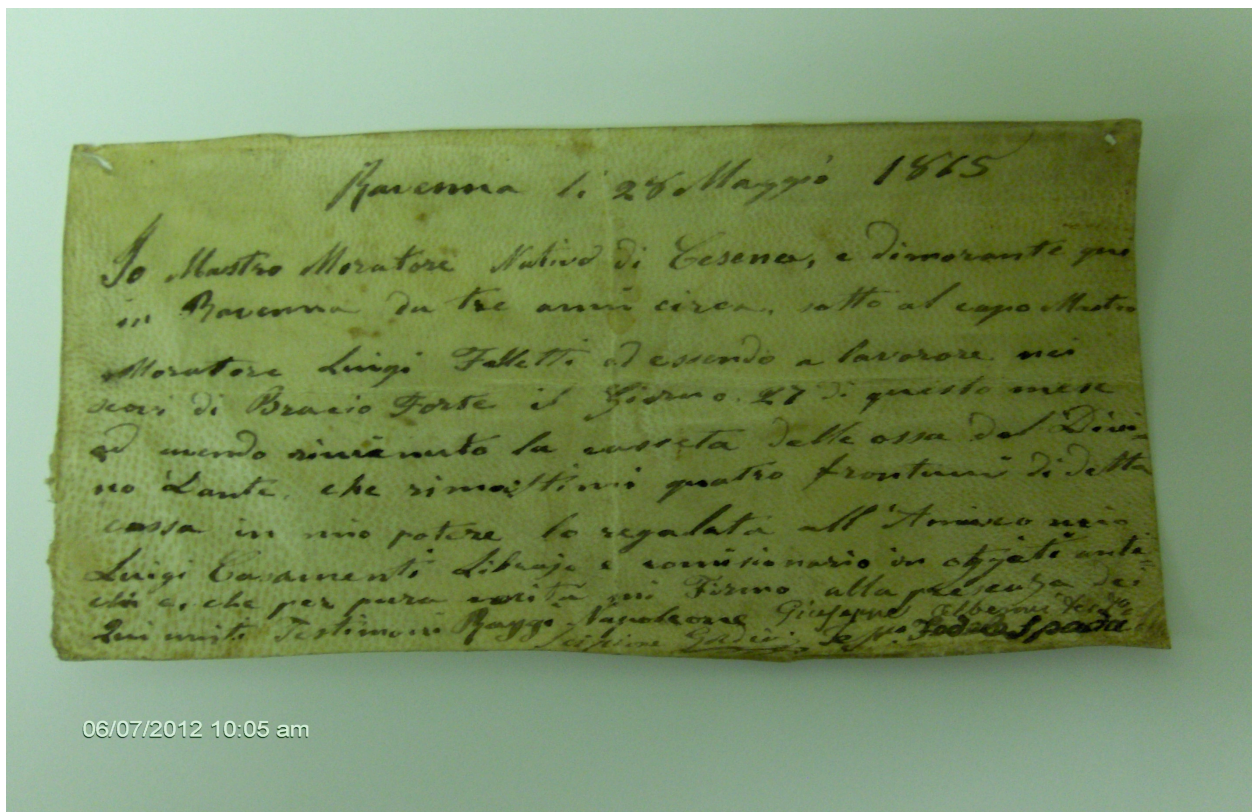 Ravenna li 28 Maggio 1865
Io Mastro Moratore Nativo di Cesena, e dimorante qui
in Ravenna da tre anni circa, sotto al capo Mastro
Moratore Luigi Felletti ed essendo a lavorare nei
scavi di Bracio Forte il Giorno 27 di questo mese
ed avendo rinvenuto la casseta delle ossa del Divi-
no Dante, che rimasttimi quatro frantumi di detta
cassa in mio potere lo regalata all'Amico mio
Luigi Casamenti Librajo e comisionario in oggati anti-
chi e, che per pura verita mi Firmo alla presenza dei
Qui uniti Testimoni Raggi Napoleone Giuseppe
Scipione Fedele Spada
06/07/2012 10:05 am